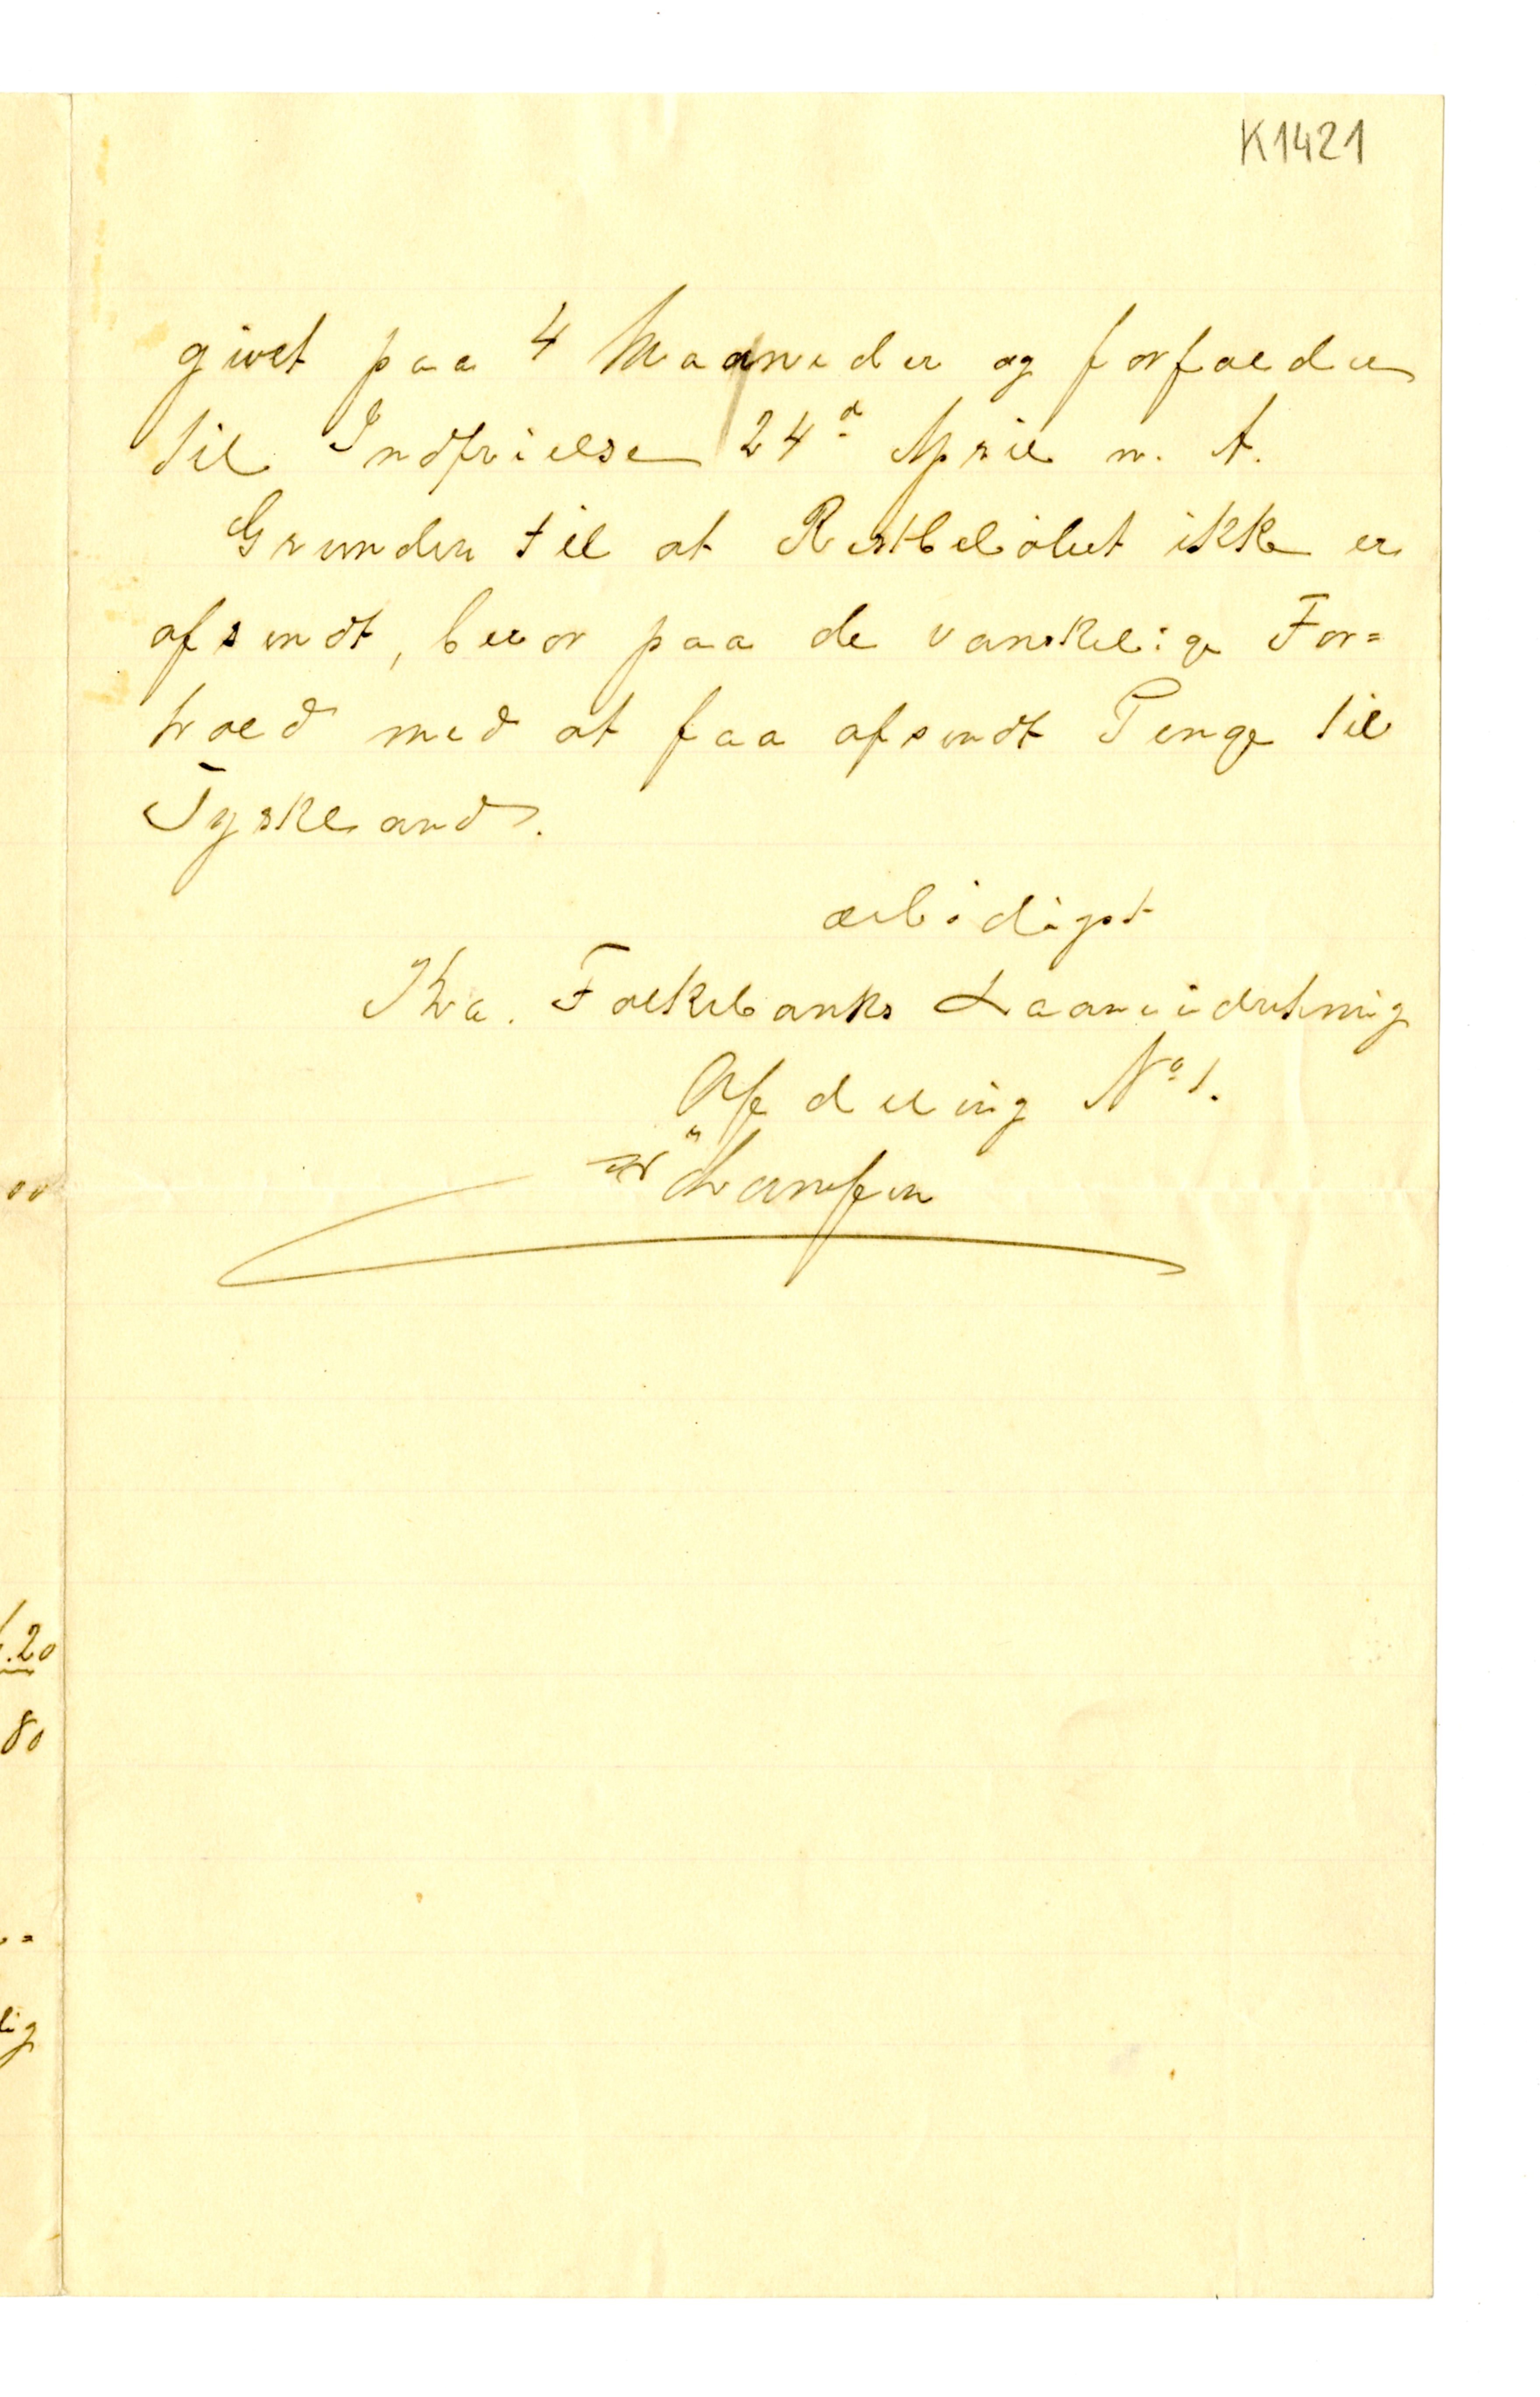 K1421
givet paa 4 Maaneder og forfalder
til Indfrielse 24d April n. A.
Grunden til at Restbelöbet ikke er
afsendt, beror paa de vanskelige For=
hold med at faa afsendt Penge til
Tyskland.
ærbödigst
Kra. Folkebanks Laaneindretning
Afdeling No 1.
Hansen
00
.20
80
lig